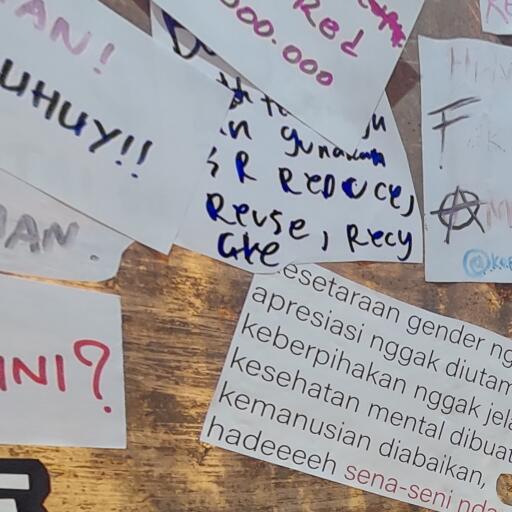 AN!
UHUY!!
Red
000.000
gunakan
3R REDUCE,
Reuse, Recy
Cle
MAN.
INI?
F
@ke
esetaraan gender ng
apresiasi nggak diutam
keberpihakan nggak jela
kesehatan mental dibuat
kemanusian diabaikan,
hadeeeeh sena-seni nda